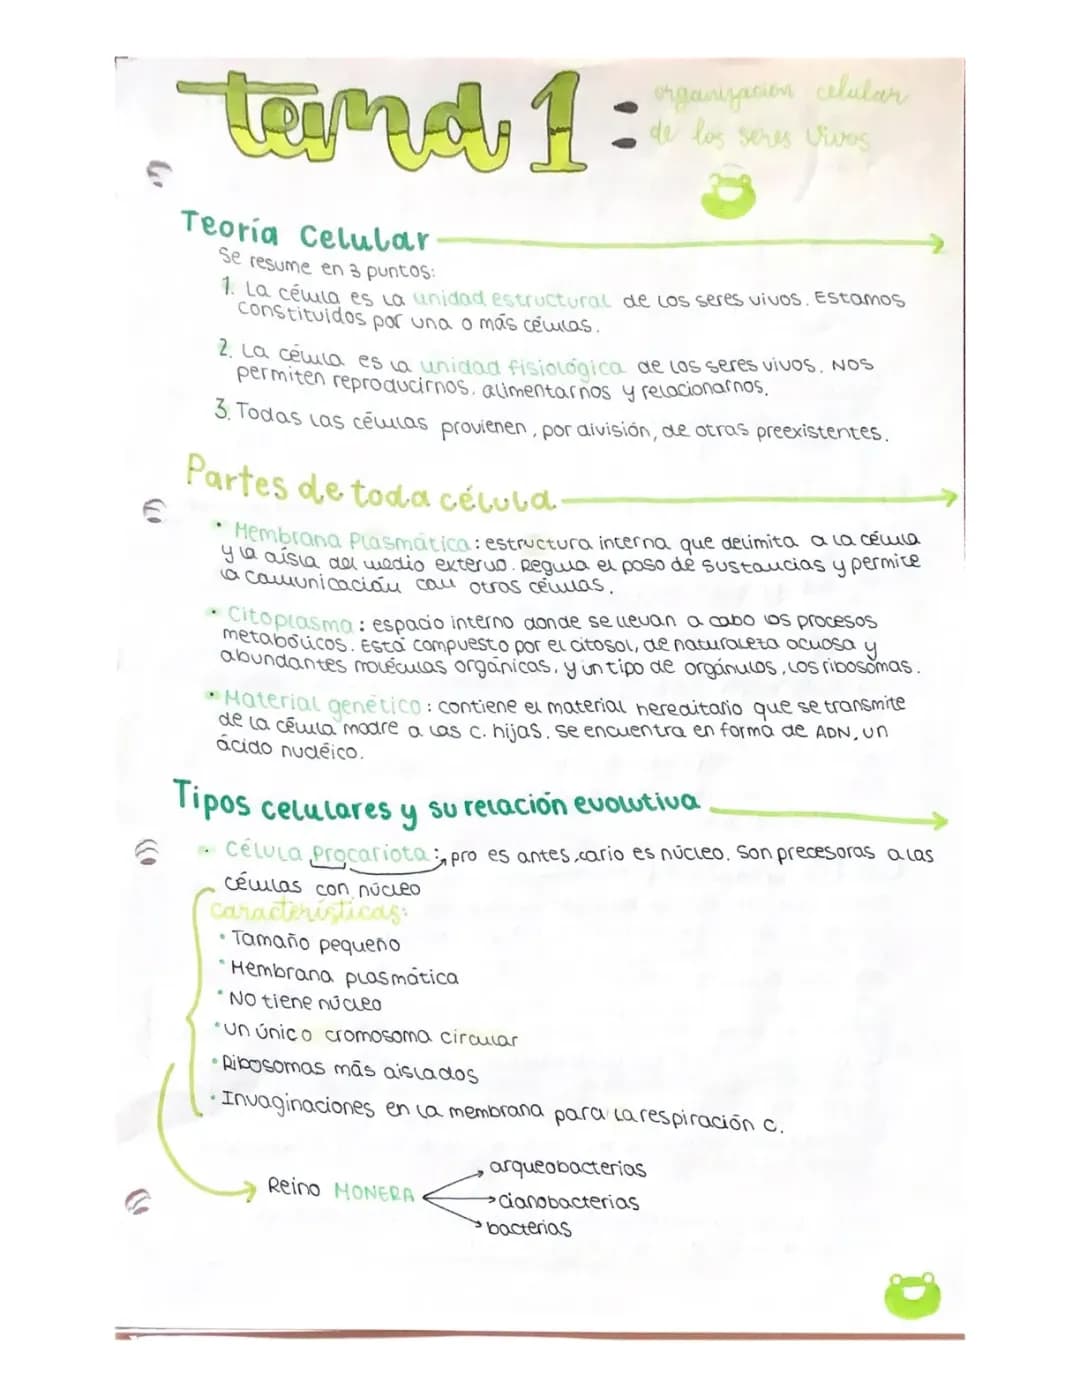 tema 1: organización celular
de los seres vivos
Teoría Celular
Se resume en 3 puntos:
1. La célula es la unidad estructural de los seres vivos. Estamos
constituidos por una o más células.
2. La célula es la unidad fisiológica de los seres vivos. Nos
permiten reproducirnos, alimentarnos y relacionarnos.
3. Todas las células provienen, por división, de otras preexistentes.
Partes de toda célula
• Membrana Plasmática: estructura interna que delimita a la célula
y la aísla del medio externo. Regula el paso de sustancias y permite
la comunicación con otros células.
• Citoplasma: espacio interno donde se llevan a cabo los procesos
metabólicos. Está compuesto por el citosol, de naturaleza acuosa y
abundantes moléculas orgánicas, y un tipo de orgánulos, los ribosomas.
• Material genético: contiene el material hereditario que se transmite
de la célula madre a las c. hijas. Se encuentra en forma de ADN, un
ácido nucléico.
Tipos celulares y su relación evolutiva
• Célula Procariota: pro es antes, cario es núcleo. Son precesoras a las
células con núcleo
características:
• Tamaño pequeño
• Membrana plasmática
• No tiene núcleo
• Un único cromosoma circular
• Ribosomas más aislados
• Invaginaciones en la membrana para la respiración c.
Reino MONERA
arqueobacterias
cianobacterias
bacterias